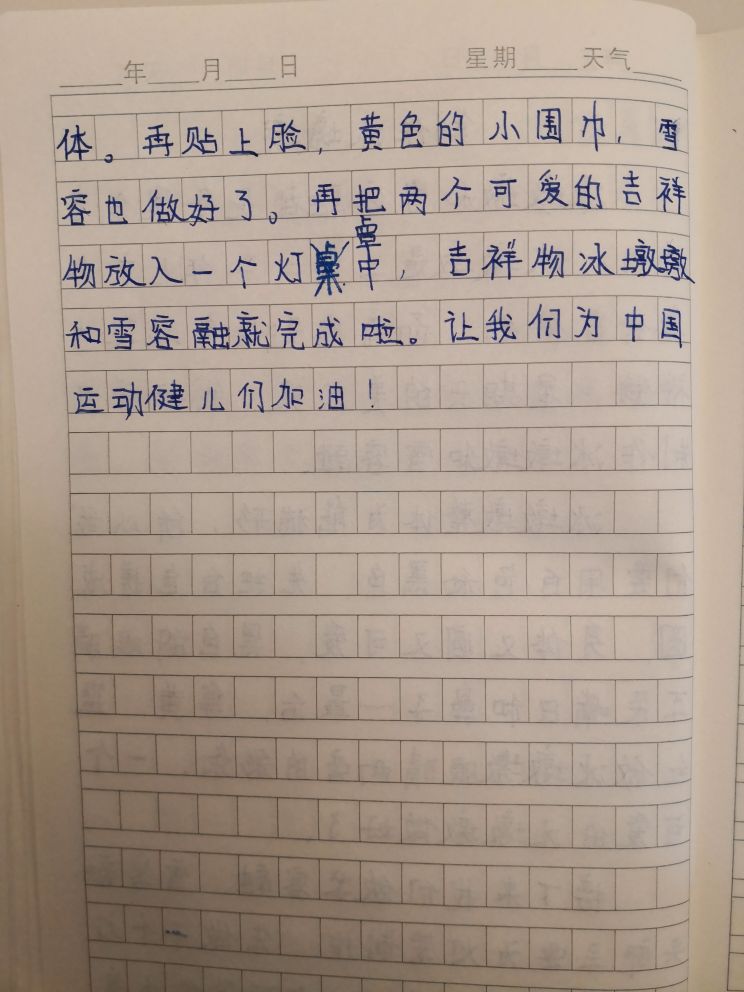 年 月 日 星期 天气
体。再贴上脸，黄色的小围巾，雪
容也做好了。再把两个可爱的吉祥
物放入一个灯中，吉祥物冰墩墩
和雪容融就完成啦。让我们为中国
运动健儿们加油！